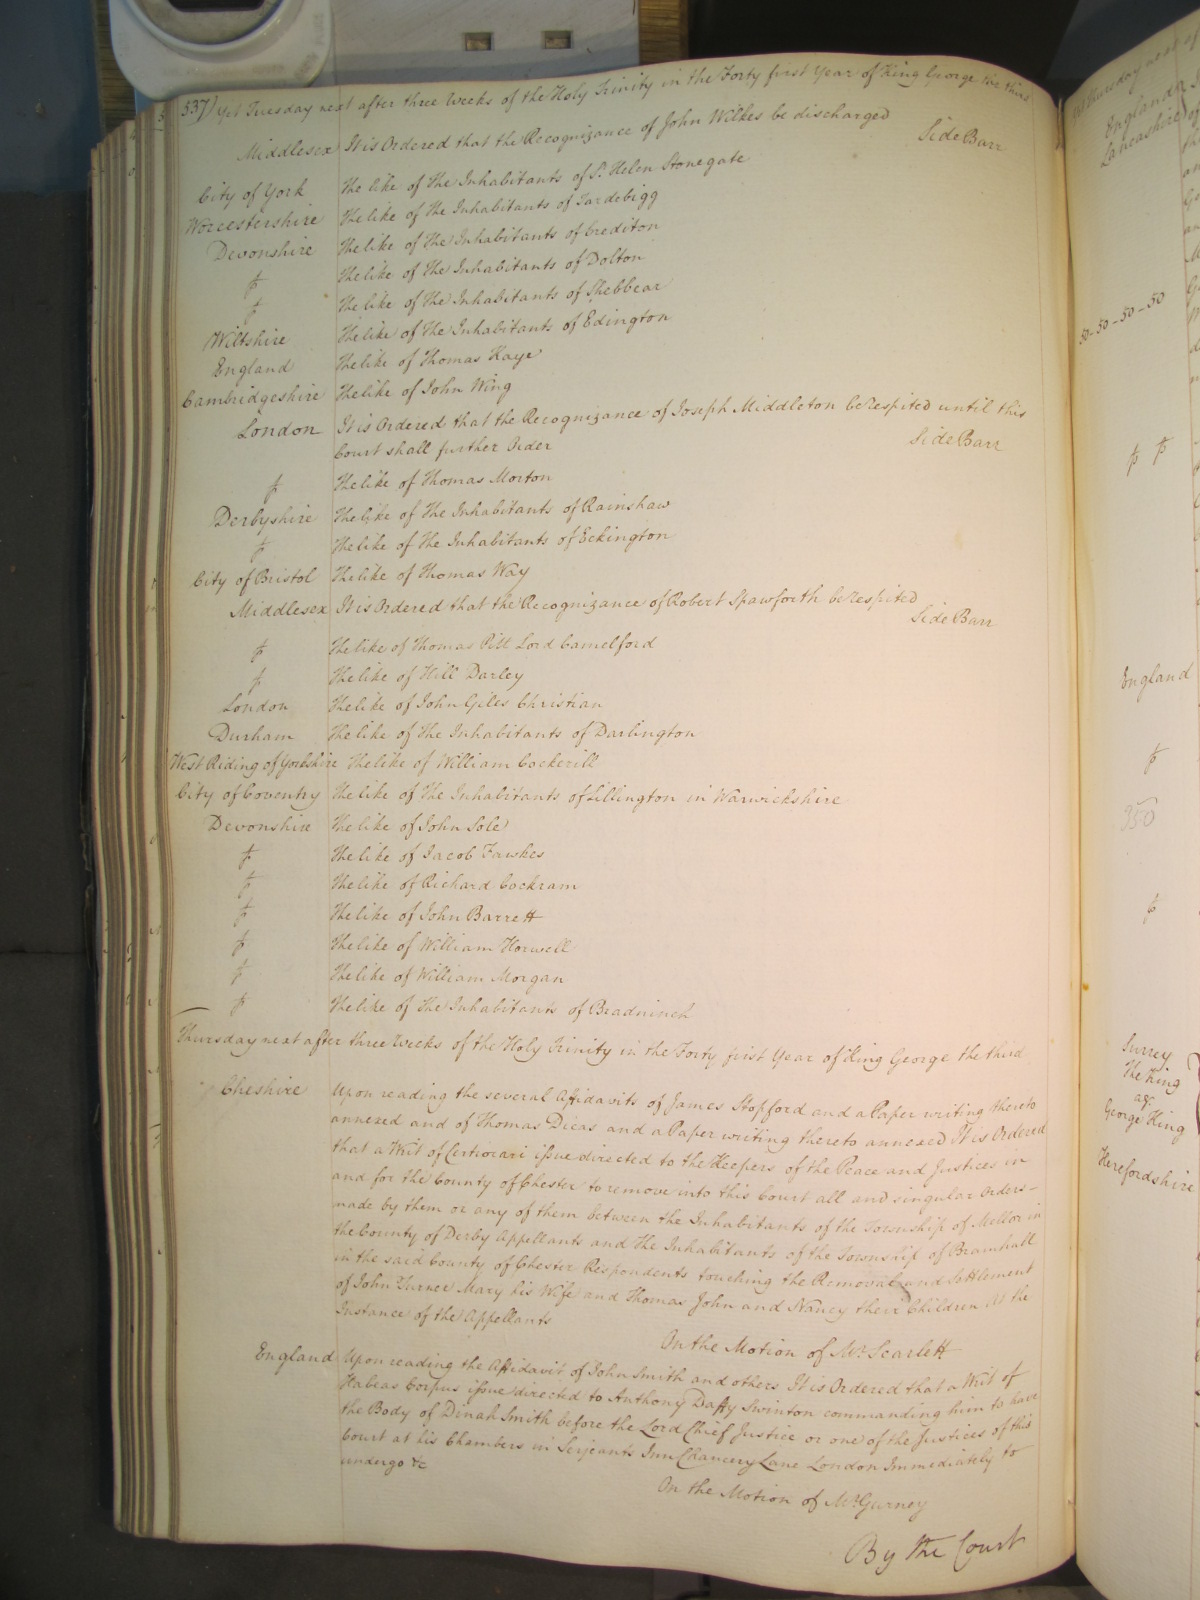 537) Yet Tuesday next after three Weeks of the Holy Trinity in the Forty first Year of King George the third
Middlesex It is Ordered that the Recognizance of John Wilkes be discharged
Side Barr
City of York The like of the Inhabitants of St. Helen Stonegate
Worcestershire The like of the Inhabitants of Tardebigg
Devonshire The like of the Inhabitants of Crediton
The like of the Inhabitants of Dolton
The like of the Inhabitants of Shebbear
Wiltshire The like of the Inhabitants of Edington
England The like of Thomas Kaye
Cambridgeshire The like of John Wing
London It is Ordered that the Recognizance of Joseph Middleton be respited until this
Court shall further Order
Side Barr
The like of Thomas Morton
Derbyshire The like of the Inhabitants of Rainshaw
The like of the Inhabitants of Eckington
City of Bristol The like of Thomas Way
Middlesex It is Ordered that the Recognizance of Robert Spawforth be respited
Side Barr
The like of Thomas Pitt Lord Camelford
The like of Hill Darley
London The like of John Giles Christian
Durham The like of the Inhabitants of Darlington
West Riding of Yorkshire The like of William Cockerill
City of Coventry The like of the Inhabitants of Lillington in Warwickshire
Devonshire The like of John Sole
The like of Jacob Fawkes
The like of Richard Cockram
The like of John Barrett
The like of William Horwell
The like of William Morgan
The like of the Inhabitants of Bradninch
Thursday next after three Weeks of the Holy Trinity in the Forty first Year of King George the third
Cheshire Upon reading the several Affidavits of James Stopford and a Paper writing thereto
annexed and of Thomas Dicas and a Paper writing thereto annexed It is Ordered
that a Writ of Certiorari issue directed to the Keepers of the Peace and Justices in
and for the County of Chester to remove into this Court all and singular Orders
made by them or any of them between the Inhabitants of the Township of Mellor in
the County of Derby Appellants and the Inhabitants of the Township of Bramhall
in the said County of Chester Respondents touching the Removal and Settlement
of John Turner Mary his Wife and Thomas John and Nancy their Children At the
Instance of the Appellants
On the Motion of Mr. Scarlett
England Upon reading the Affidavit of John Smith and others It is Ordered that a Writ of
Habeas Corpus issue directed to Anthony Daffy Swinton commanding him to have
the Body of Dinah Smith before the Lord Chief Justice or one of the Justices of this
Court at his Chambers in Serjeants Inn Chancery Lane London Immediately to
undergo &c
On the Motion of Mr. Gurney
By the Court
England
Lancashire
50-50-50-50
England
350
Surrey
The King
agt.
George King
Herefordshire